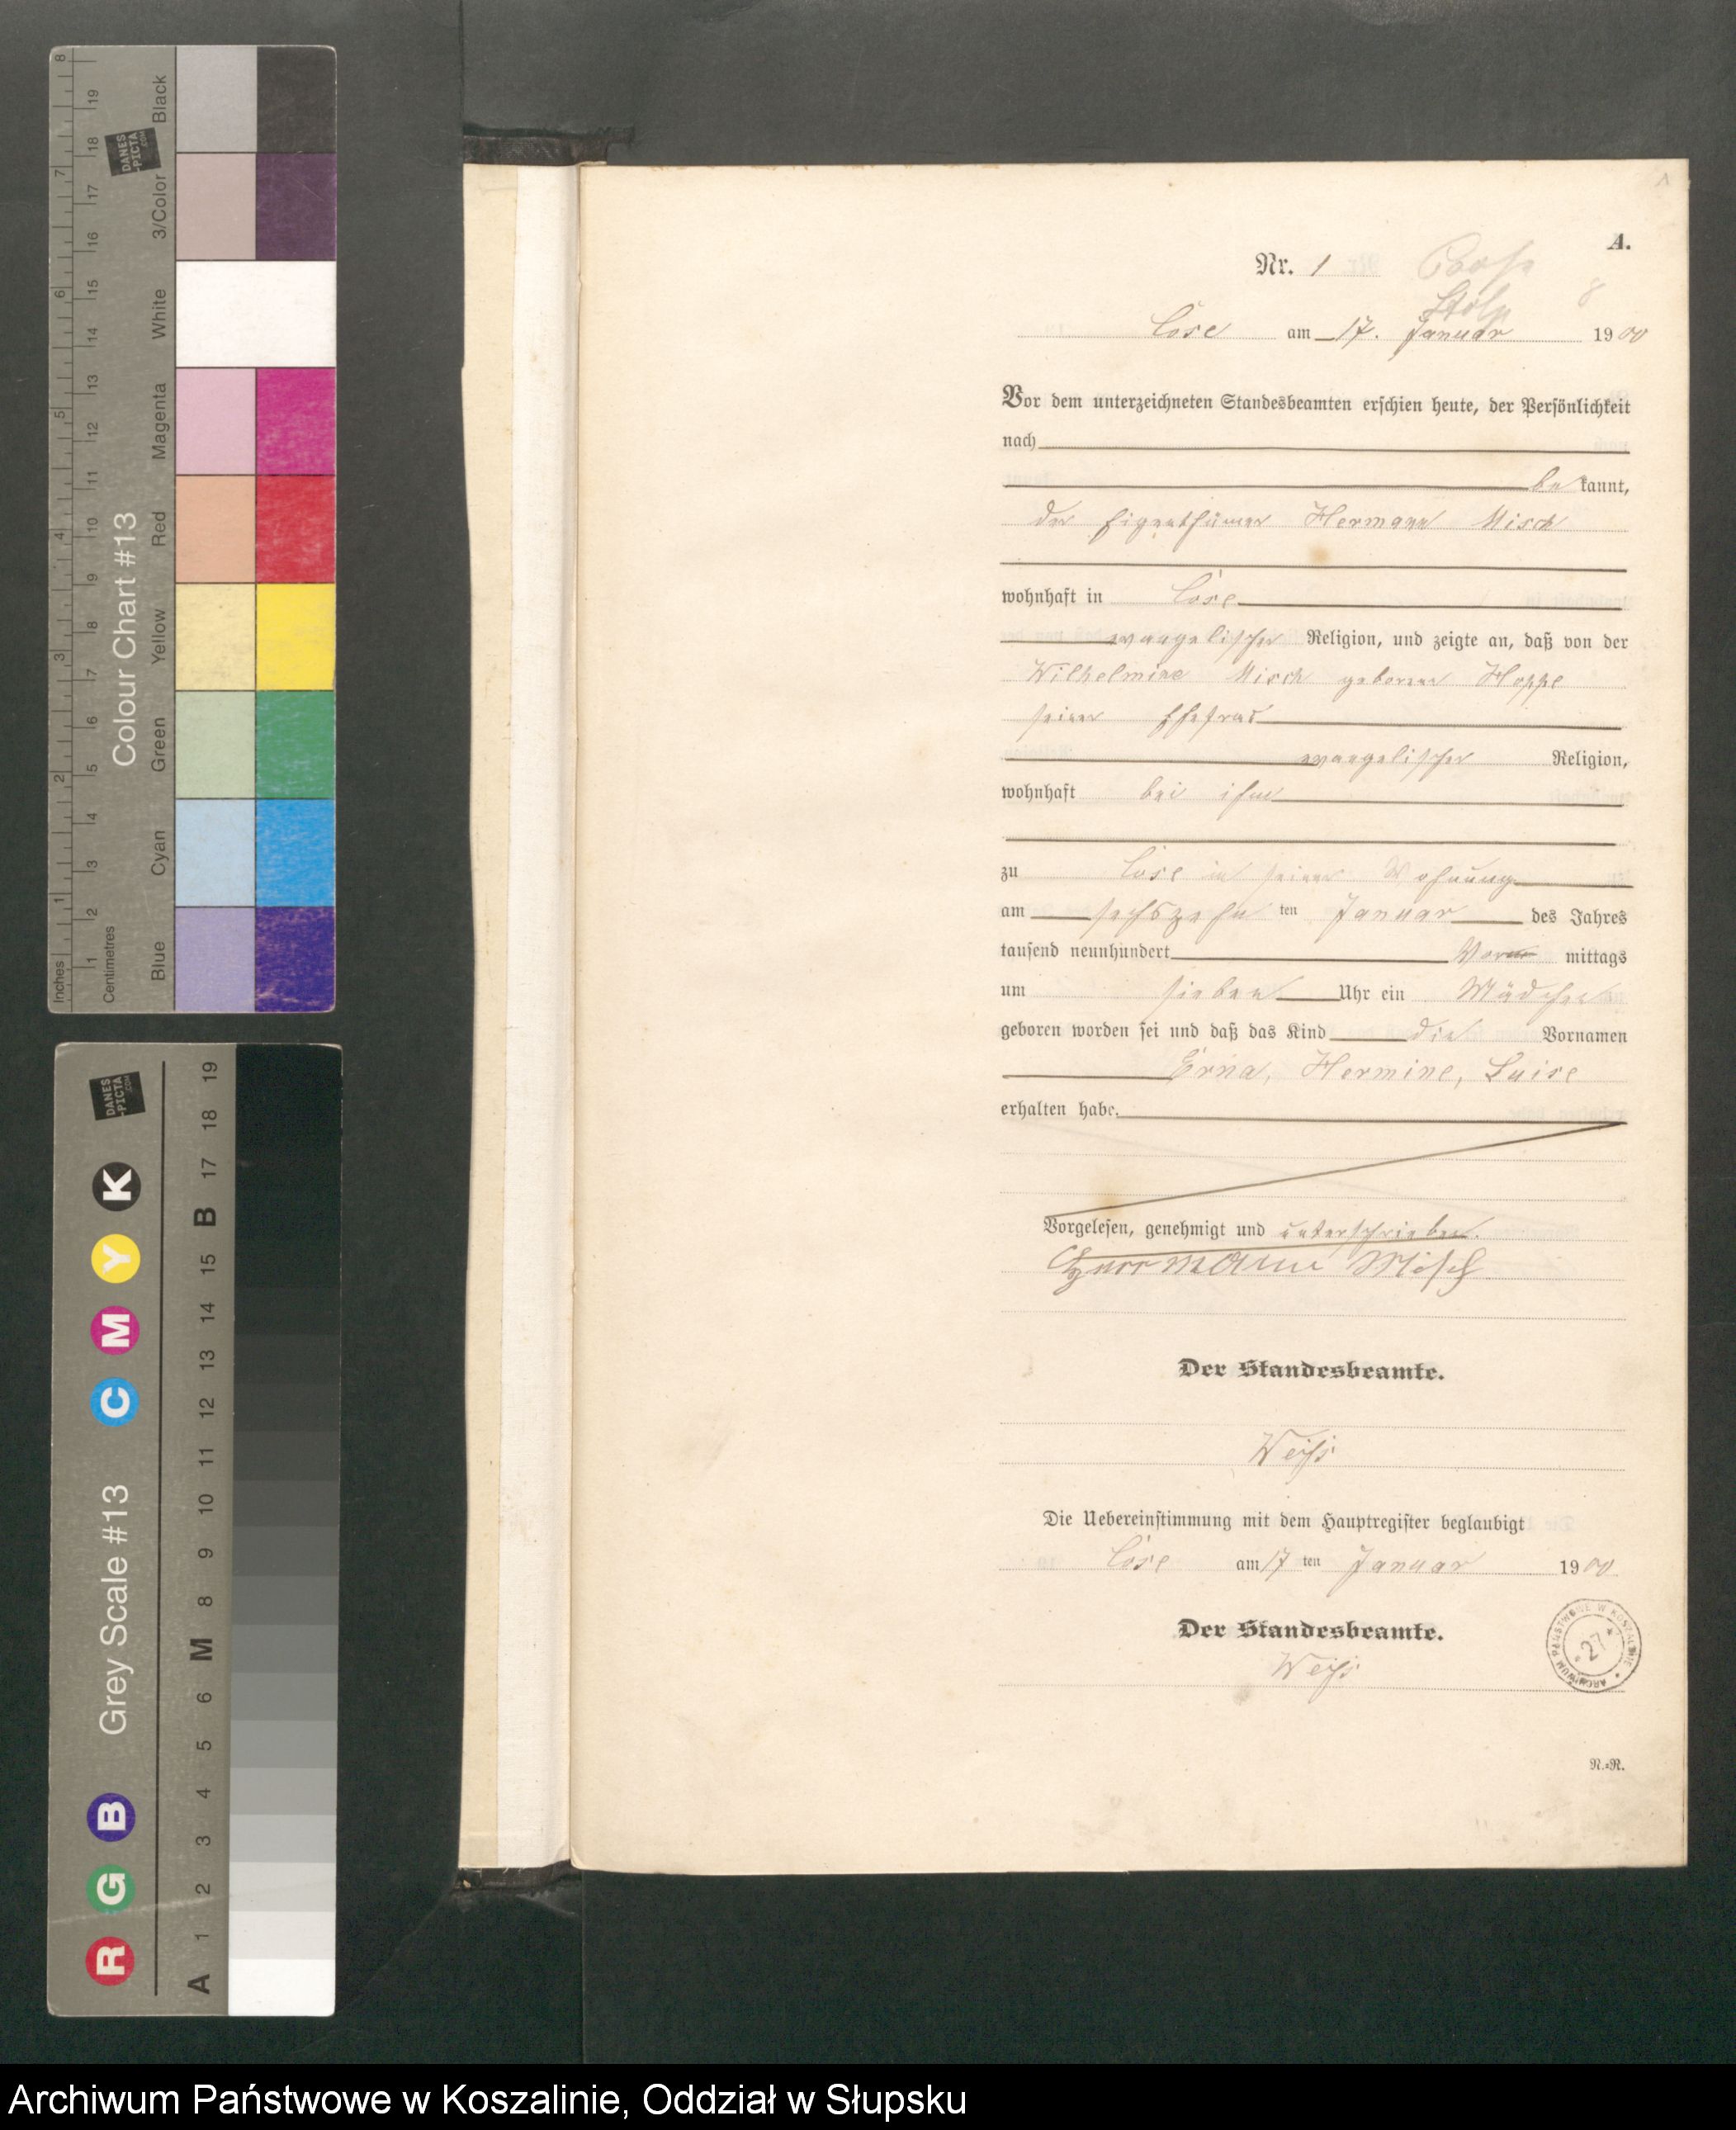 A.
Nr. 1
Stolp
Cose am 17. Januar 1900
Vor dem unterzeichneten Standesbeamten erschien heute, der Persönlichkeit
nach
be kannt,
der Eigenthümer Hermann Misch
wohnhaft in Cose
evangelischer Religion, und zeigte an, daß von der
Wilhelmine Misch geborenen Hoppe
seiner Ehefrau
evangelischer Religion,
wohnhaft bei ihm
zu Cose in seiner Wohnung
am sechszehn ten Januar des Jahres
tausend neunhundert Vor mittags
um sieben Uhr ein Mädchen
geboren worden sei und daß das Kind die Vornamen
Erna, Hermine, Luise
erhalten habe.
Vorgelesen, genehmigt und unterschrieben.
Herrmann Misch
Der Standesbeamte.
Weiß
Die Uebereinstimmung mit dem Hauptregister beglaubigt
Cose am 17 ten Januar 1900
Der Standesbeamte.
Weiß
ARCHIWUM PAŃSTWOWE W KOSZALINIE
27
N.=R.
Colour Chart #13
Blue Cyan Green Yellow Red Magenta White 3/Color Black
Inches 1 2 3 4 5 6 7 8
Centimetres 1 2 3 4 5 6 7 8 9 10 11 12 13 14 15 16 17 18 19
DANES
-PICTA
.COM
R G B Grey Scale #13 C M Y K
A 1 2 3 4 5 6 M 8 9 10 11 12 13 14 15 B 17 18 19
DANES
-PICTA
.COM
Archiwum Państwowe w Koszalinie, Oddział w Słupsku